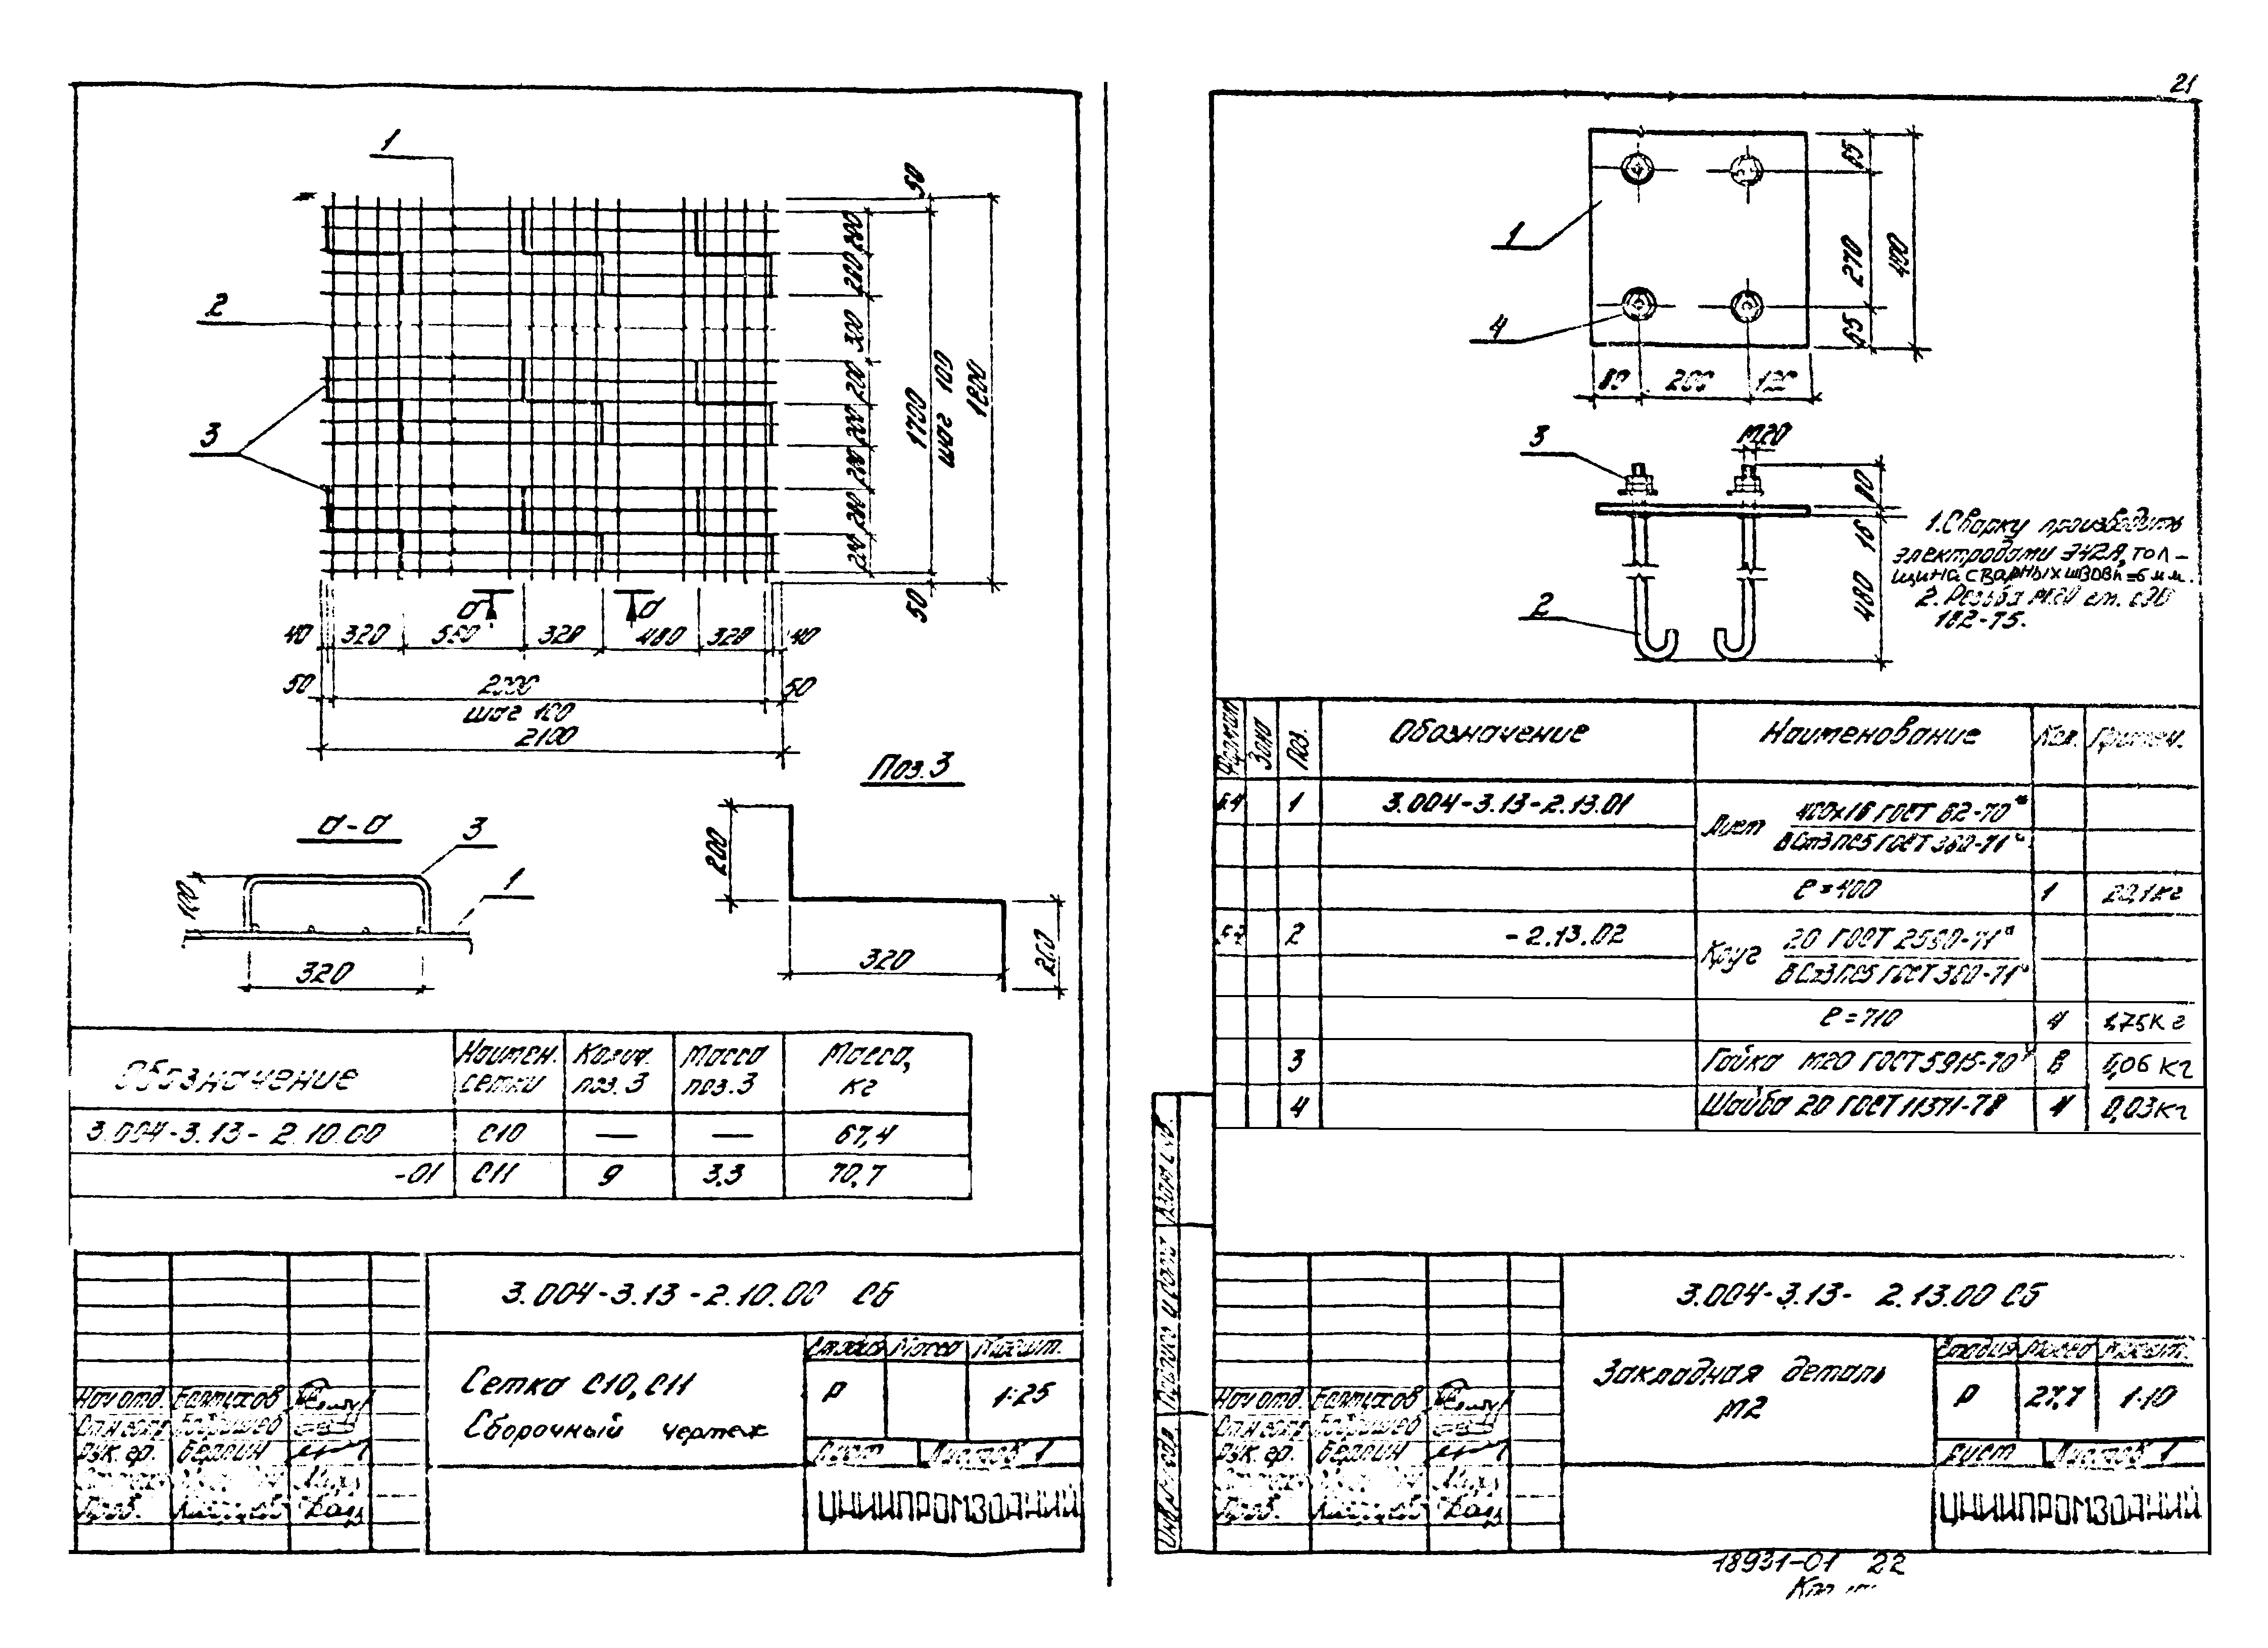 21
1
2
3
50
200
200
300
200
200
200
200
200
50
1700
шаг 100
1800
а
а
40
320
560
320
480
320
40
50
2000
50
шаг 100
2100
Поз.3
а-а
3
1
100
320
200
320
200
Обозначение
Наимен. сетки
Колич. поз.3
Масса поз.3
Масса, кг
3.004-3.13-2.10.00 С10 — — 67,4
-01 С11 9 3,3 70,7
3.004-3.13-2.10.00 СБ
Сетка С10, С11
Сборочный чертеж
Стадия Масса Масшт.
Р 1:25
Лист Листов 1
Нач.отд.
Рук. гр. Берлин
Пров.
ЦНИИПРОМЗДАНИЙ
1
4
65
270
65
400
80
200
120
3
М20
80
16
480
2
1. Сварку производить
электродами Э42А, тол-
щина сварных швов h=6 мм.
2. Резьба М20 ст. СЭВ
182-75.
Формат Зона Поз. Обозначение Наименование Кол. Примеч.
Б4 1 3.004-3.13-2.13.01 Лист 400х16 ГОСТ 82-70*
ВСт3пс5 ГОСТ 380-71*
ℓ=400 1 20,1кг
Б4 2 -2.13.02 Круг 20 ГОСТ 2590-71*
ВСт3пс5 ГОСТ 380-71*
ℓ=710 4 1,75кг
3 Гайка М20 ГОСТ 5915-70* 8 0,06 кг
4 Шайба 20 ГОСТ 11371-78 4 0,03кг
3.004-3.13- 2.13.00 СБ
Закладная деталь
М2
Стадия Масса Масшт.
Р 27,7 1:10
Лист Листов 1
Нач.отд.
Рук. гр. Берлин
Пров.
ЦНИИПРОМЗДАНИЙ
18931-01 22